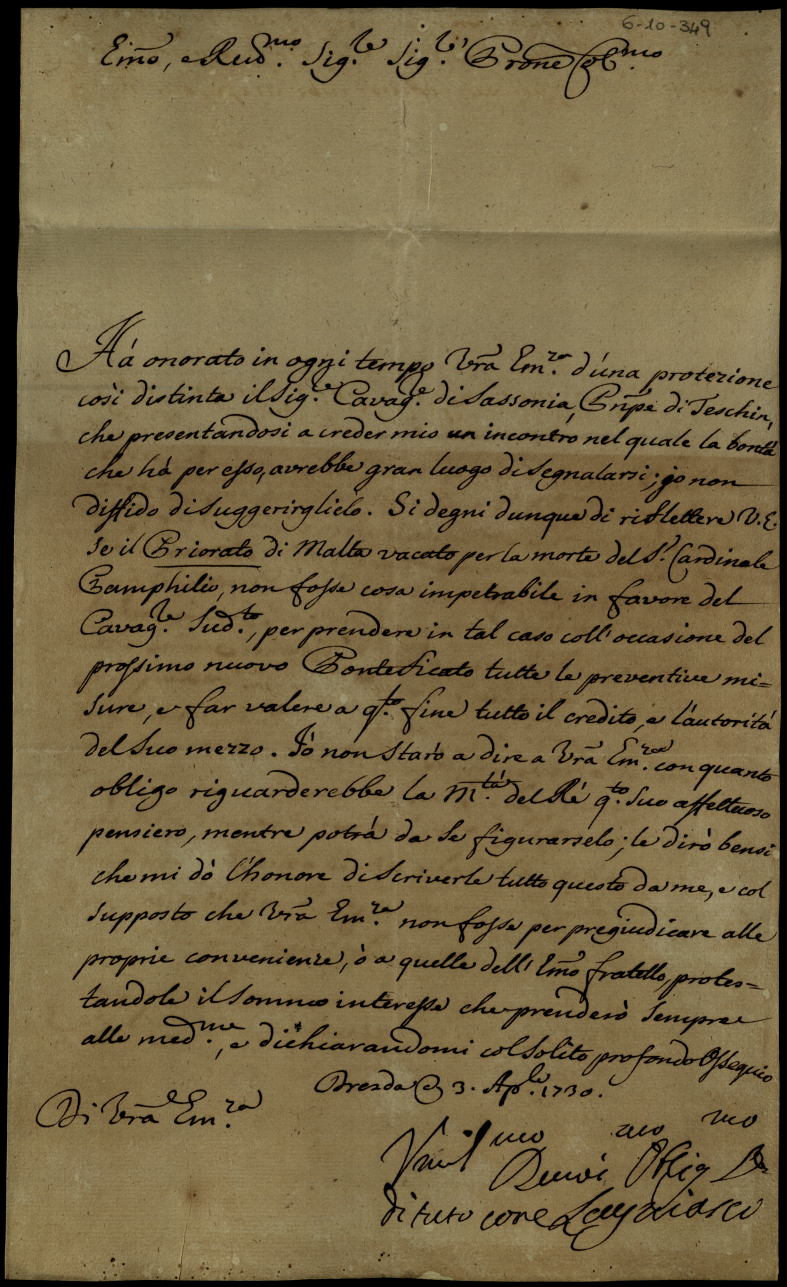 6-10-349
Emo, e Reud.mo Sig.le Sig.le Prone Cob.mo
Há onorato in ogni tempo Vrã Em.za d'úna protezione
così distinta il Sig.e Cavag.e di Sassonia, Prnpe di Teschin,
che presentandosi a creder mio un incontro, nel quale la bontà
che hà per esso, avrebbe gran luogo di segnalarsi; jo non
diffido di suggerirglielo. Si degni dunque di riflettere V. E.
se il Priorato di Malta vacato per la morte del S.r Cardinale
Pamphilio, non fosse cosa impetrabile in favore del
Cavag.le Sud.to, per prendere in tal caso coll'occasione del
prossimo nuovo Pontificato tutte le preventive mi=
sure, e far valere a q.to fine tutto il credito, e l'autorità
del suo mezzo. Jò non starò a dire a Vrã Em.za con quanto
obligo riguarderebbe la M.tà del Ré q.to suo affettuoso
pensiero, mentre potrà da se figurarselo; le dirò bensi
che mi dò l'honore di scriverle tutto questo da me, e col
supposto che Vrã Em.za non fosse per pregiudicare alle
proprie convenienze, ò a quelle dell'Emo fratello, protes=
tandole il sommo interesse che prenderò sempre
alle med.me, e dichiarandomi col solito profondo Ossequio
Dresda 3. Ap.le 1730.
Di Vrã Em.za
Vmil mo mo mo
Oblig
di tuto core Lagnasco